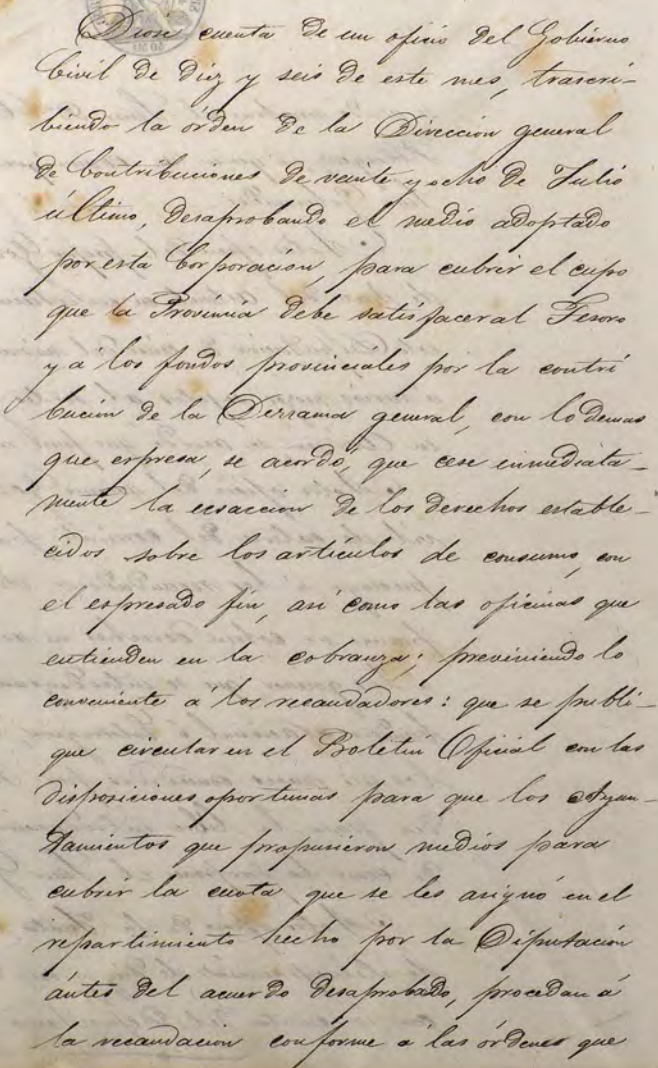 Diose cuenta de un oficio del Gobierno
Civil de diez y seis de este mes, trascri-
biendo la órden de la Direccion general
de Contribuciones de veinte y ocho de Julio
último, desaprobando el medio adoptado
por esta Corporación, para cubrir el cupo
que la Provincia debe satisfacer al Tesoro
y á los fondos provinciales por la contri
bución de la Derrama general, con lo demas
que espresa, se acordó, que cese inmediata-
mente la ecsaccion de los derechos estable-
cidos sobre los artículos de consumo, con
el espresado fin, así como las oficinas que
entienden en la cobranza; previniendo lo
conveniente á los recaudadores: que se publi-
que circular en el Boletin Oficial con las
disposiciones oportunas para que los Ayun-
tamientos que propusieron medios para
cubrir la cuota que se les asignó en el
repartimiento hecho por la Diputación
ántes del acuerdo desaprobado, procedan á
la recaudacion conforme á las órdenes que